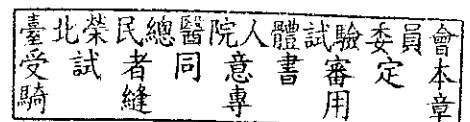 臺北榮民總醫院人體試驗委員會
受試者同意書審定本
騎縫專用章